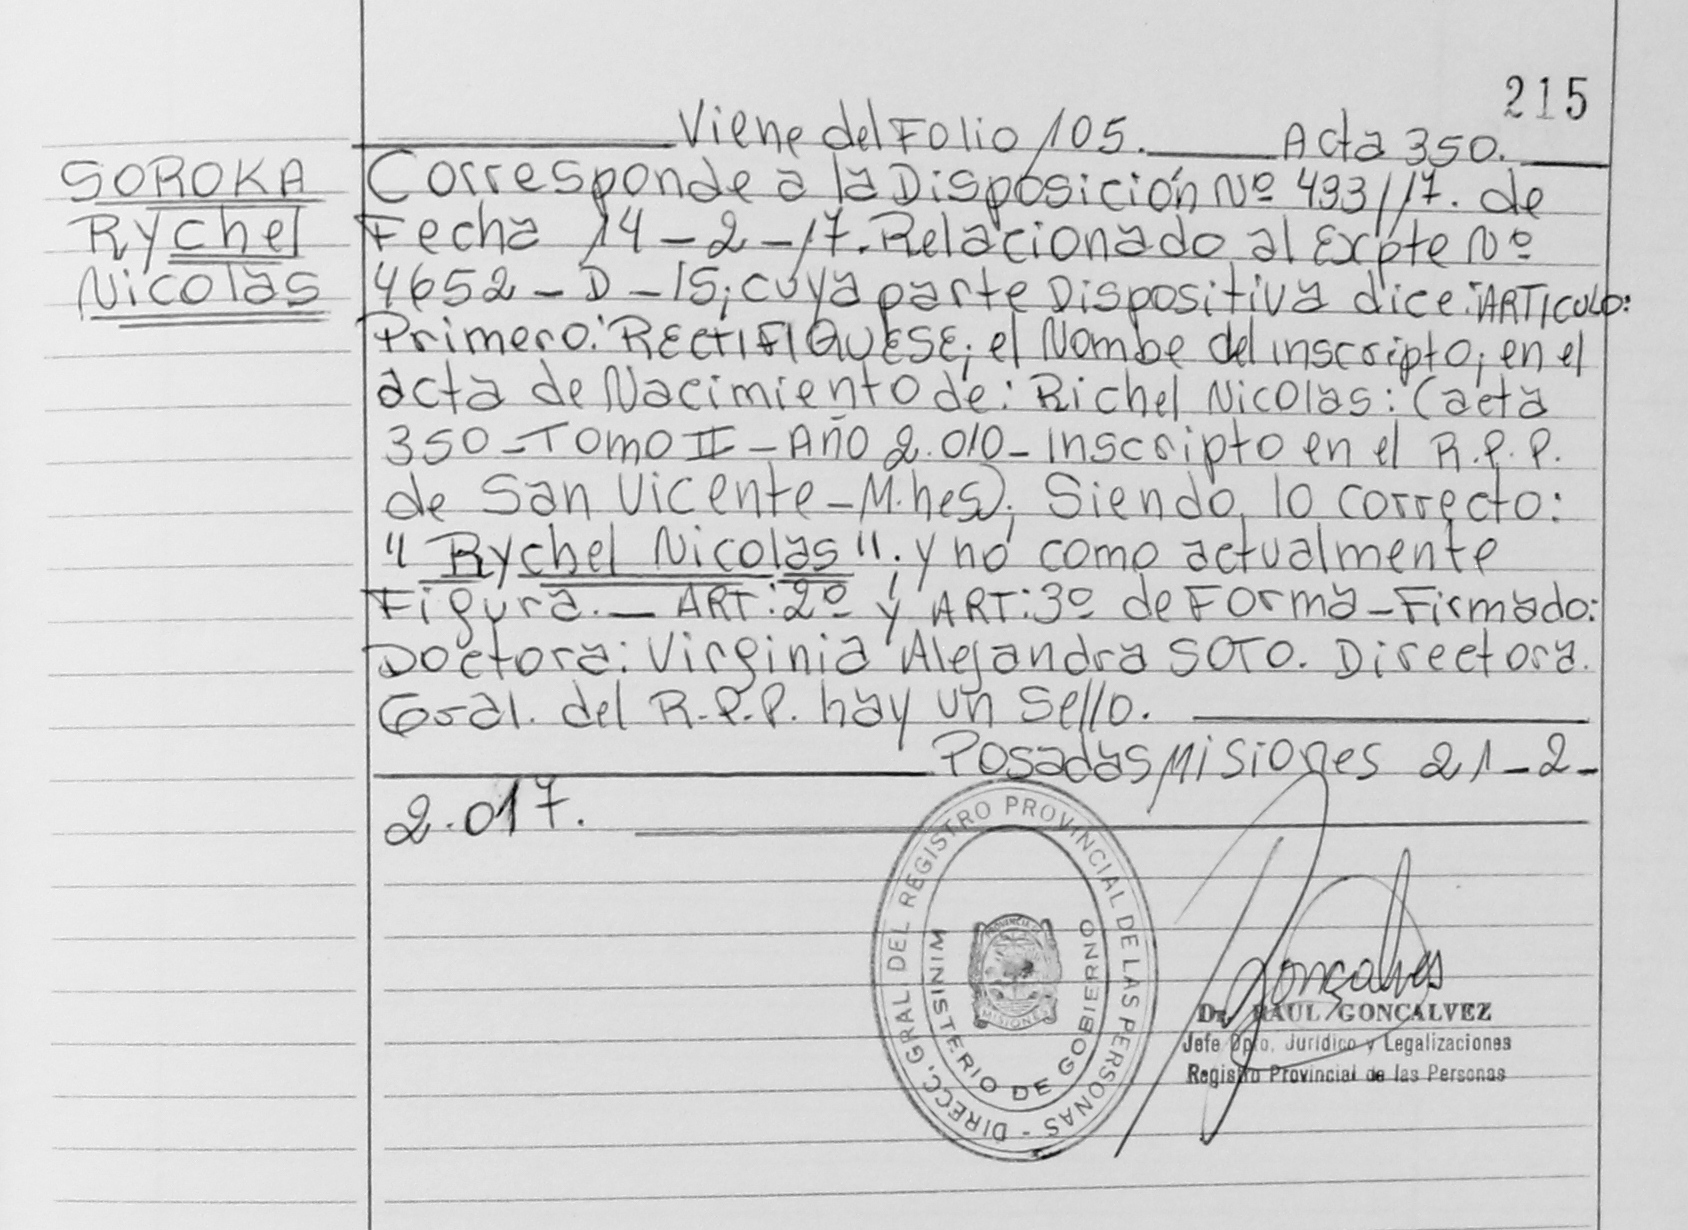 215
Viene del Folio 105. Acta 350.
SOROKA
Rychel
Nicolas
Corresponde a la Disposición Nº 493/17. de
Fecha 14-2-17. Relacionado al Expte Nº
4652-D-15; cuya parte Dispositiva dice: "ARTICULO:
Primero: RECTIFIQUESE; el Nombe del inscripto; en el
acta de Nacimiento de: Richel Nicolas: (acta
350-Tomo II-Año 2.010- Inscripto en el R.P.P.
de San Vicente-M.nes); Siendo lo correcto:
"Rychel Nicolas"; y no como actualmente
Figura.- ART: 2º y ART: 3º de Forma-Firmado:
Doctora: Virginia Alejandra SOTO. Directora.
Gral. del R.P.P. hay un Sello.
Posadas Misiones 21-2-
2.017.
DIRECC. GRAL. DEL REGISTRO PROVINCIAL DE LAS PERSONAS -
MINISTERIO DE GOBIERNO
PROVINCIA
MISIONES
Gonçalves
Dr. RAUL GONCALVEZ
Jefe Dpto. Jurídico y Legalizaciones
Registro Provincial de las Personas